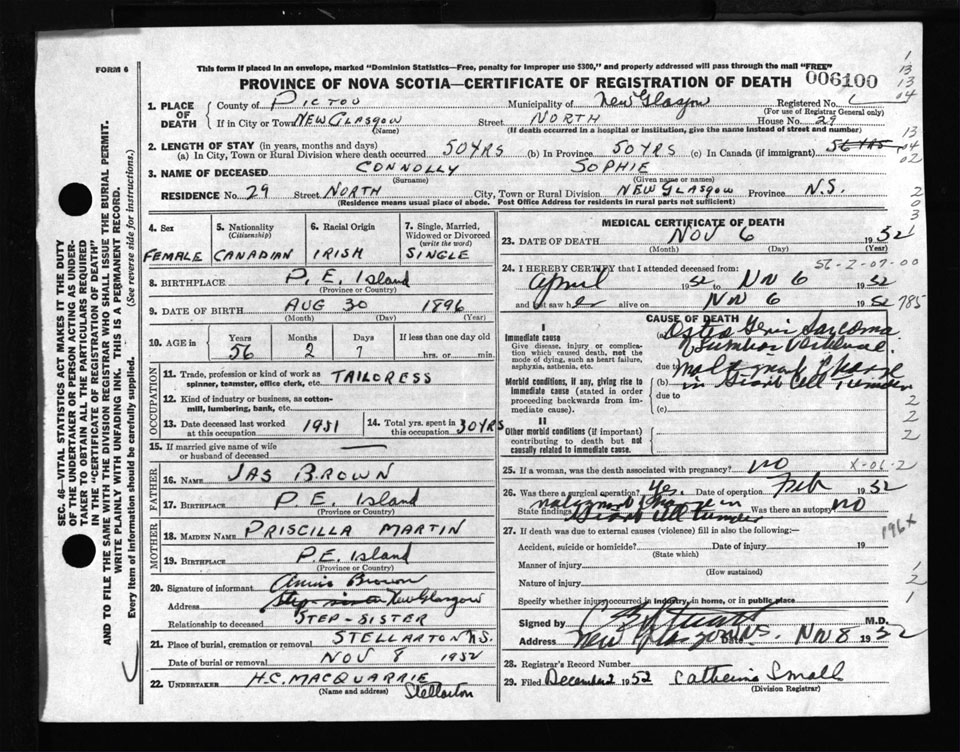 FORM 6
This form if placed in an envelope, marked "Dominion Statistics—Free, penalty for improper use $300," and properly addressed will pass through the mail "FREE"
PROVINCE OF NOVA SCOTIA—CERTIFICATE OF REGISTRATION OF DEATH 006100
1. PLACE OF DEATH
County of PICTOU Municipality of New Glasgow Registered No.
(For use of Registrar General only)
If in City or Town NEW GLASGOW Street NORTH House No. 29
(Name) (If death occurred in a hospital or institution, give the name instead of street and number)
2. LENGTH OF STAY (in years, months and days)
(a) In City, Town or Rural Division where death occurred 50 YRS (b) In Province 50 YRS (c) In Canada (if immigrant) 56 YRS
3. NAME OF DECEASED CONNOLLY SOPHIE
(Surname) (Given name or names)
RESIDENCE No. 29 Street NORTH City, Town or Rural Division NEW GLASGOW Province N.S.
(Residence means usual place of abode. Post Office Address for residents in rural parts not sufficient)
4. Sex FEMALE
5. Nationality (Citizenship) CANADIAN
6. Racial Origin IRISH
7. Single, Married, Widowed or Divorced (write the word) SINGLE
8. BIRTHPLACE P. E. Island
(Province or Country)
9. DATE OF BIRTH AUG 30 1896
(Month) (Day) (Year)
10. AGE in Years Months Days If less than one day old
56 2 7 hrs. or min.
OCCUPATION
11. Trade, profession or kind of work as spinner, teamster, office clerk, etc. TAILORESS
12. Kind of industry or business, as cotton-mill, lumbering, bank, etc.
13. Date deceased last worked at this occupation 1951
14. Total yrs. spent in this occupation 30 YRS
15. If married give name of wife or husband of deceased
FATHER
16. NAME JAS BROWN
17. BIRTHPLACE P. E. Island
(Province or Country)
MOTHER
18. MAIDEN NAME PRISCILLA MARTIN
19. BIRTHPLACE P.E. Island
(Province or Country)
20. Signature of informant Annie Brown
Address Step-sister New Glasgow
Relationship to deceased STEP-SISTER
21. Place of burial, cremation or removal STELLARTON N.S.
Date of burial or removal NOV 8 1952
22. UNDERTAKER H.C. MACQUARRIE
(Name and address) Stellarton
MEDICAL CERTIFICATE OF DEATH
23. DATE OF DEATH Nov 6 1952
(Month) (Day) (Year)
52-2-07-00
24. I HEREBY CERTIFY that I attended deceased from:
April 1952 to Nov 6 1952
and last saw her alive on Nov 6 1952
785
CAUSE OF DEATH
I
Immediate cause
Give disease, injury or complication which caused death, not the mode of dying, such as heart failure, asphyxia, asthenia, etc.
Osteo Genic Sarcoma
Lumbar Vertebrae
due to
Morbid conditions, if any, giving rise to immediate cause (stated in order proceeding backwards from immediate cause).
(b) in Giant Cell Tumor
due to
(c)
II
Other morbid conditions (if important) contributing to death but not causally related to immediate cause.
25. If a woman, was the death associated with pregnancy? no
X-06-2
26. Was there a surgical operation? Yes. Date of operation Feb 1952
State findings Malignant change in Giant Cell tumor Was there an autopsy? no
27. If death was due to external causes (violence) fill in also the following:—
196X
Accident, suicide or homicide? Date of injury 19
(State which)
Manner of injury
(How sustained)
Nature of injury
Specify whether injury occurred in industry, in home, or in public place
Signed by M.D.
Address New Glasgow N.S. Date Nov 8 1952
28. Registrar's Record Number
29. Filed December 2 1952 Catherine Small
(Division Registrar)
SEC. 46—VITAL STATISTICS ACT MAKES IT THE DUTY
OF THE UNDERTAKER OR PERSON ACTING AS UNDER-
TAKER TO OBTAIN ALL THE PARTICULARS REQUIRED
IN THE "CERTIFICATE OF REGISTRATION OF DEATH"
AND TO FILE THE SAME WITH THE DIVISION REGISTRAR WHO SHALL ISSUE THE BURIAL PERMIT.
WRITE PLAINLY WITH UNFADING INK. THIS IS A PERMANENT RECORD.
Every item of information should be carefully supplied. (See reverse side for instructions.)